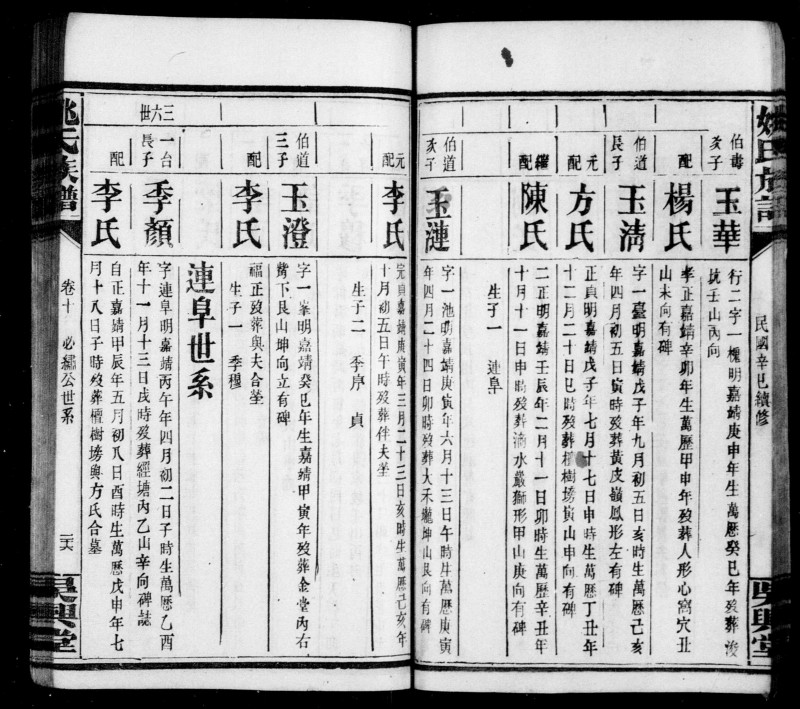 姚氏族譜
民國辛巳續修
吳興堂
伯壽
亥子
玉華
行二字一櫂明嘉靖庚申年生萬歷癸巳年歿葬浚
坑壬山內向
配
楊氏
孝正嘉靖辛卯年生萬歷甲申年歿葬人形心窩穴丑
山未向有碑
伯道
長子
玉清
字一臺明嘉靖戊子年九月初五日亥時生萬歷己亥
年四月初五日寅時歿葬黃皮嶺鳳形左有碑
元
配
方氏
正貞明嘉靖戊子年七月十七日申時生萬歷丁丑年
十二月二十日巳時歿葬檀樹塝寅山申向有碑
繼
配
陳氏
二正明嘉靖壬辰年二月十一日卯時生萬歷辛丑年
十月十一日申時歿葬滴水巖獅形甲山庚向有碑
生子一 連阜
伯道
亥子
玉漣
字一池明嘉靖庚寅年六月十三日午時生萬歷庚寅
年四月二十四日卯時歿葬大禾壠坤山艮向有碑
元
配
李氏
完貞嘉靖庚寅年三月二十三日亥時生萬歷己亥年
十月初五日午時歿葬伴夫塋
生子二 季序 貞
伯道
三子
玉澄
字一峯明嘉靖癸巳年生嘉靖甲寅年歿葬金堂內右
觜下艮山坤向立有碑
配
李氏
福正歿葬與夫合塋
生子一 季穆
連阜世系
三六世
一台
長子
季顏
字連阜明嘉靖丙午年四月初二日子時生萬歷乙酉
年十一月十三日戌時歿葬經塘內乙山辛向碑誌
配
李氏
自正嘉靖甲辰年五月初八日酉時生萬歷戊申年七
月十八日子時歿葬檀樹塝與方氏合墓
姚氏族譜
卷十 必繡公世系
二六
吳興堂